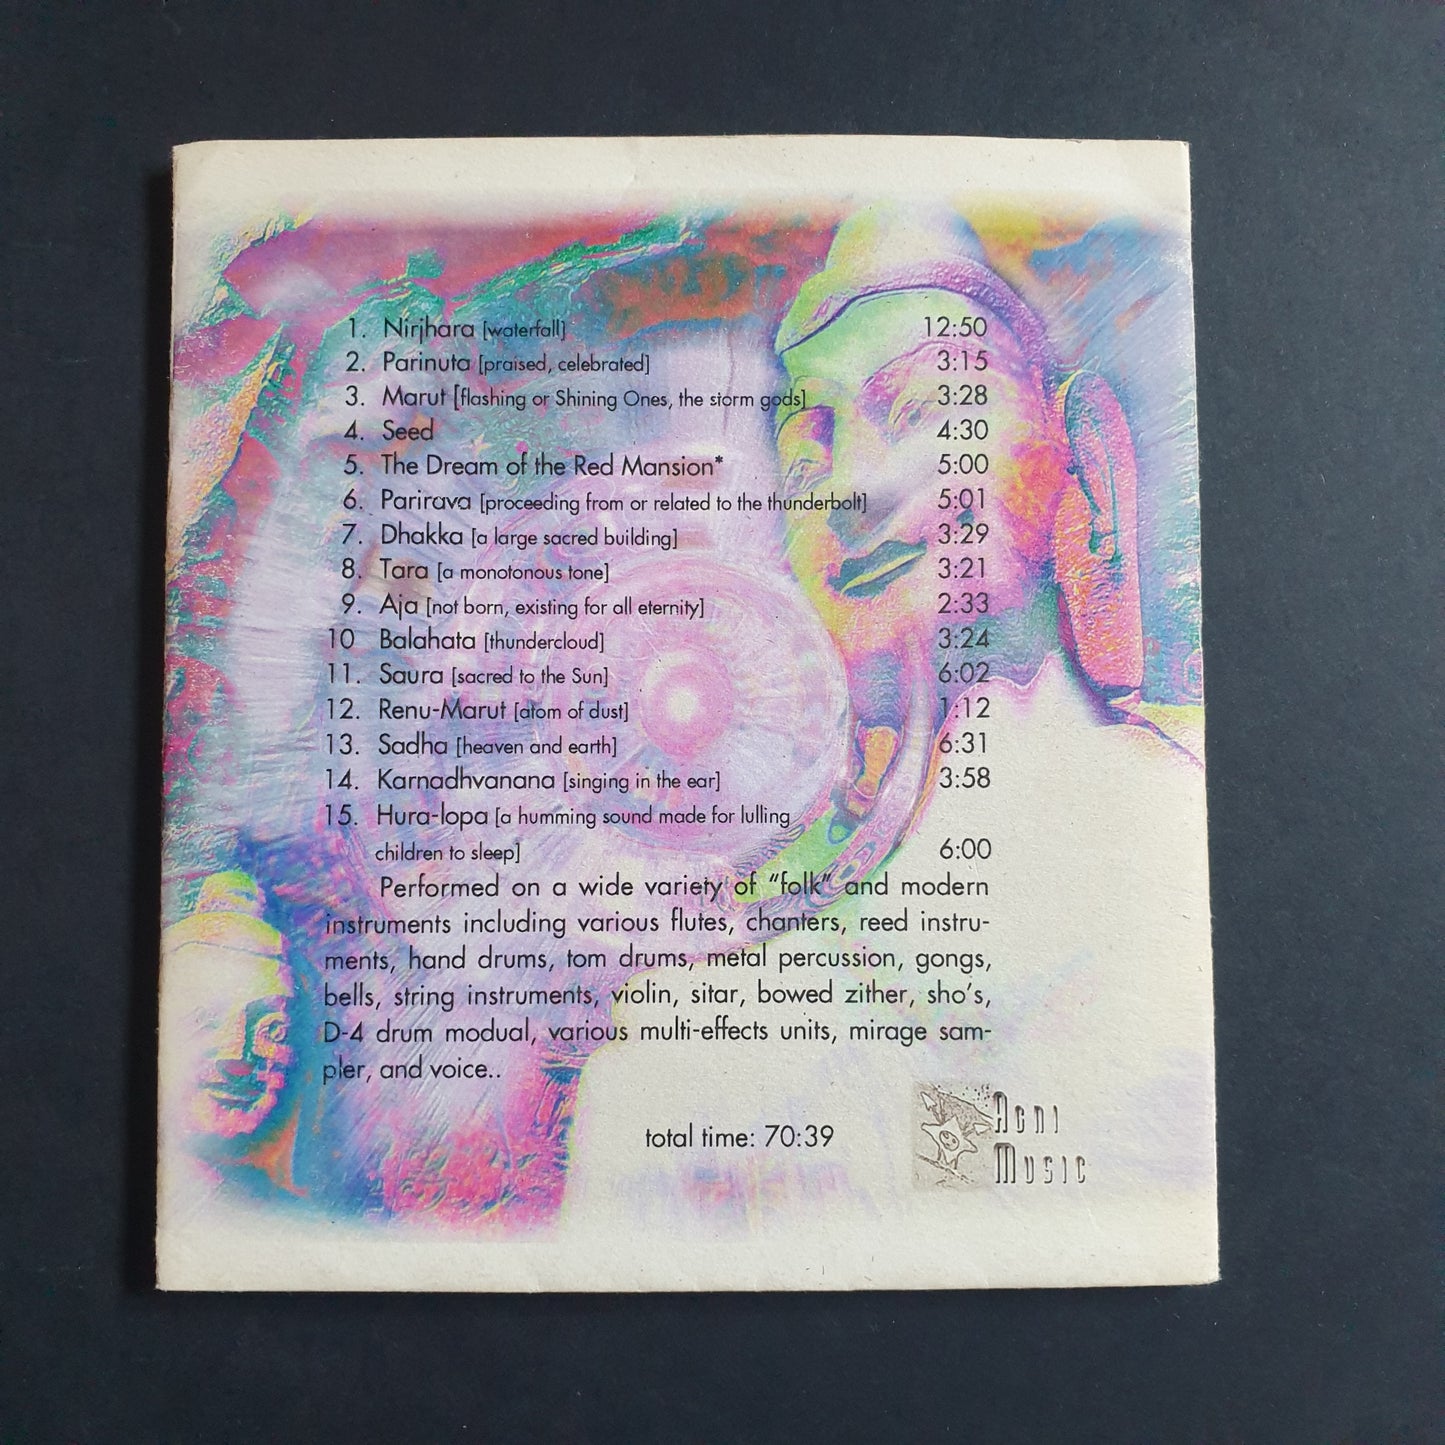 1. Nirjhara [waterfall] 12:50
2. Parinuta [praised, celebrated] 3:15
3. Marut [flashing or Shining Ones, the storm gods] 3:28
4. Seed 4:30
5. The Dream of the Red Mansion* 5:00
6. Parirava [proceeding from or related to the thunderbolt] 5:01
7. Dhakka [a large sacred building] 3:29
8. Tara [a monotonous tone] 3:21
9. Aja [not born, existing for all eternity] 2:33
10 Balahata [thundercloud] 3:24
11. Saura [sacred to the Sun] 6:02
12. Renu-Marut [atom of dust] 1:12
13. Sadha [heaven and earth] 6:31
14. Karnadhvanana [singing in the ear] 3:58
15. Hura-lopa [a humming sound made for lulling
children to sleep] 6:00
Performed on a wide variety of “folk” and modern
instruments including various flutes, chanters, reed instru-
ments, hand drums, tom drums, metal percussion, gongs,
bells, string instruments, violin, sitar, bowed zither, sho's,
D-4 drum modual, various multi-effects units, mirage sam-
pler, and voice..
total time: 70:39
Agni
Music